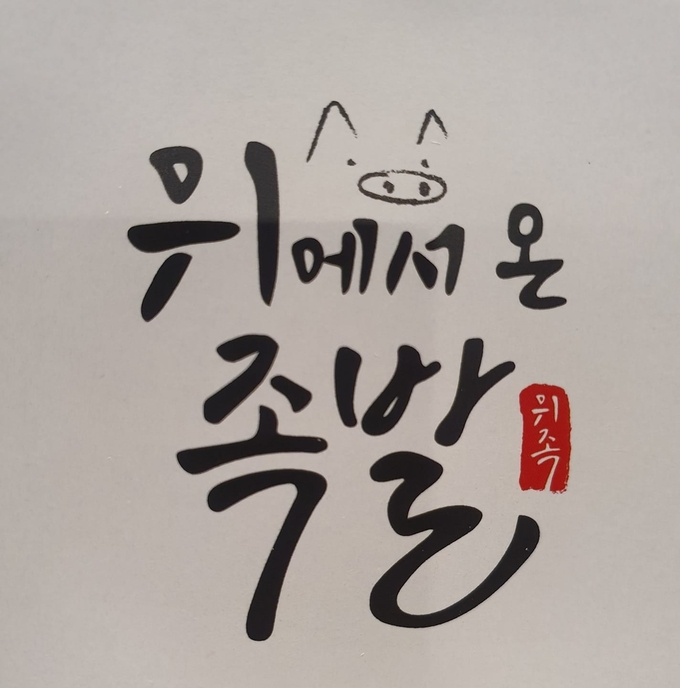 위에서 온
족발
위족